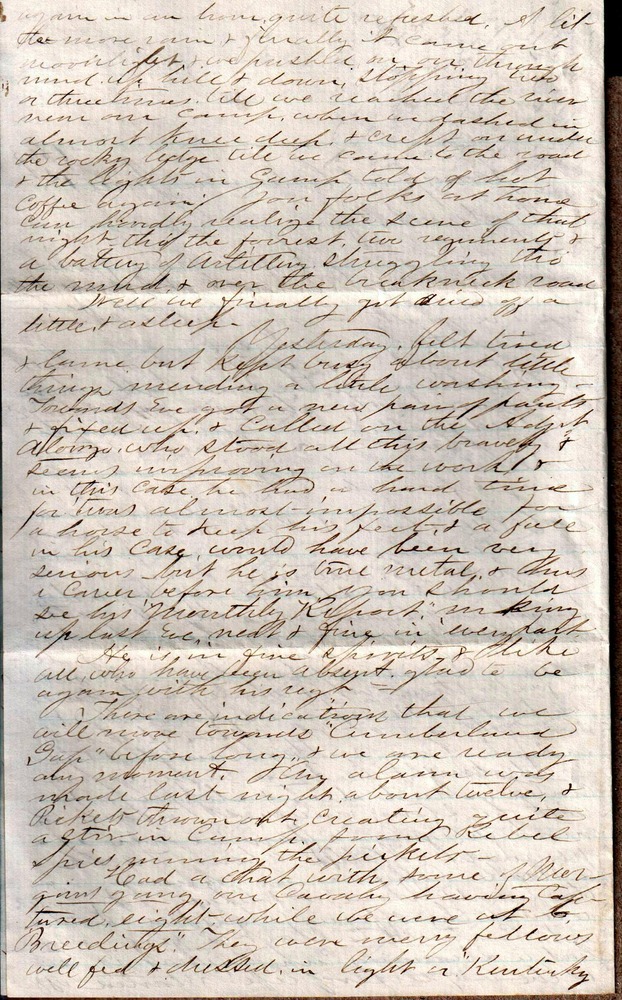 again in an hour, quite refreshed. A lit-
tle more rain & finally it came out
moonlight & we pushed on our, through
mud, up hill & down, stopping two
or three times, till we reached the river
near our Camp, when we dashed in
almost knee deep, & crept on under
the rocky ledge till we came to the road
& the lights in Camp told of hot
Coffee again! You folks at home
can hardly realize the scene of that
night thro' the forrest, two regiments &
a battery of Artillery struggling thro
the mud, & over the breakneck road
Well we finally got dried off a
little & asleep-
Yesterday, felt tired
& lame but kept busy about little
things mending a little washing -
Towards Eve got a new pair of pants
& fixed up, & Called on the Adjt
Alonzo, who stood all this bravely &
seems improving on the work &
in this Case, he had a hard time
for was almost impossible for
a horse to keep his feet, & a fall
in his Case, would have been very
serious but he is true metal, &
a Career before him, you should
see his "Monthly Report" making
up last Eve, neat & fine in every part
He is in fine spirits, &
all who have been absent, glad to be
again with his regt -
There are indications that we
will move towards "Cumberland
Gap" before long, & we are ready
any moment. An alarm was
made last night, about twelve, &
Pickets thrown out, creating quite
a stir in Camp. Some Rebel
spies running the pickets-
Had a chat with some of Mor-
gans gang, our Cavalry having Cap-
tured, eight while we were at
Breedings". They were merry fellows
well fed & dressed, in light or "Kentucky